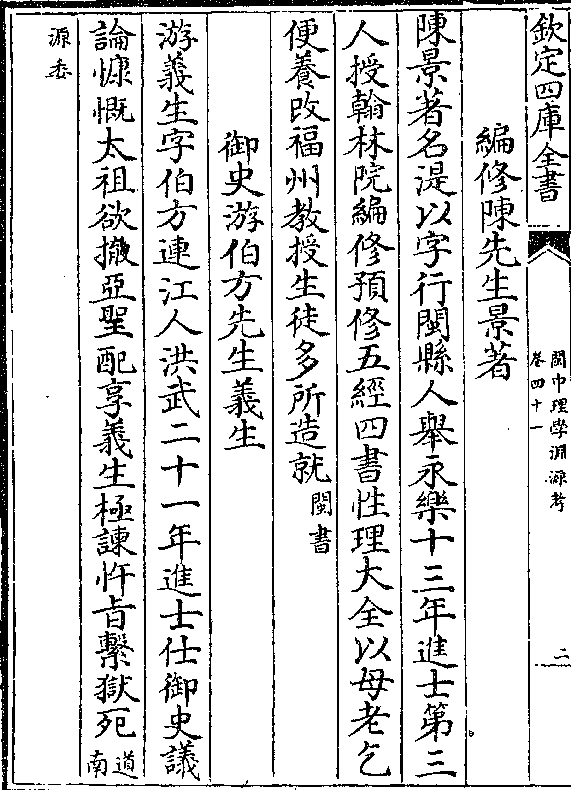 欽定四庫全書
閩中理學淵源考
卷四十一
二
編修陳先生景著
陳景著名湜以字行閩縣人舉永樂十三年進士第三
人授翰林院編修預修五經四書性理大全以母老乞
便養改福州教授生徒多所造就閩書
御史游伯方先生義生
游義生字伯方連江人洪武二十一年進士仕御史議
論慷慨太祖欲撤亞聖配享義生極諫忤旨繫獄死道南
源委